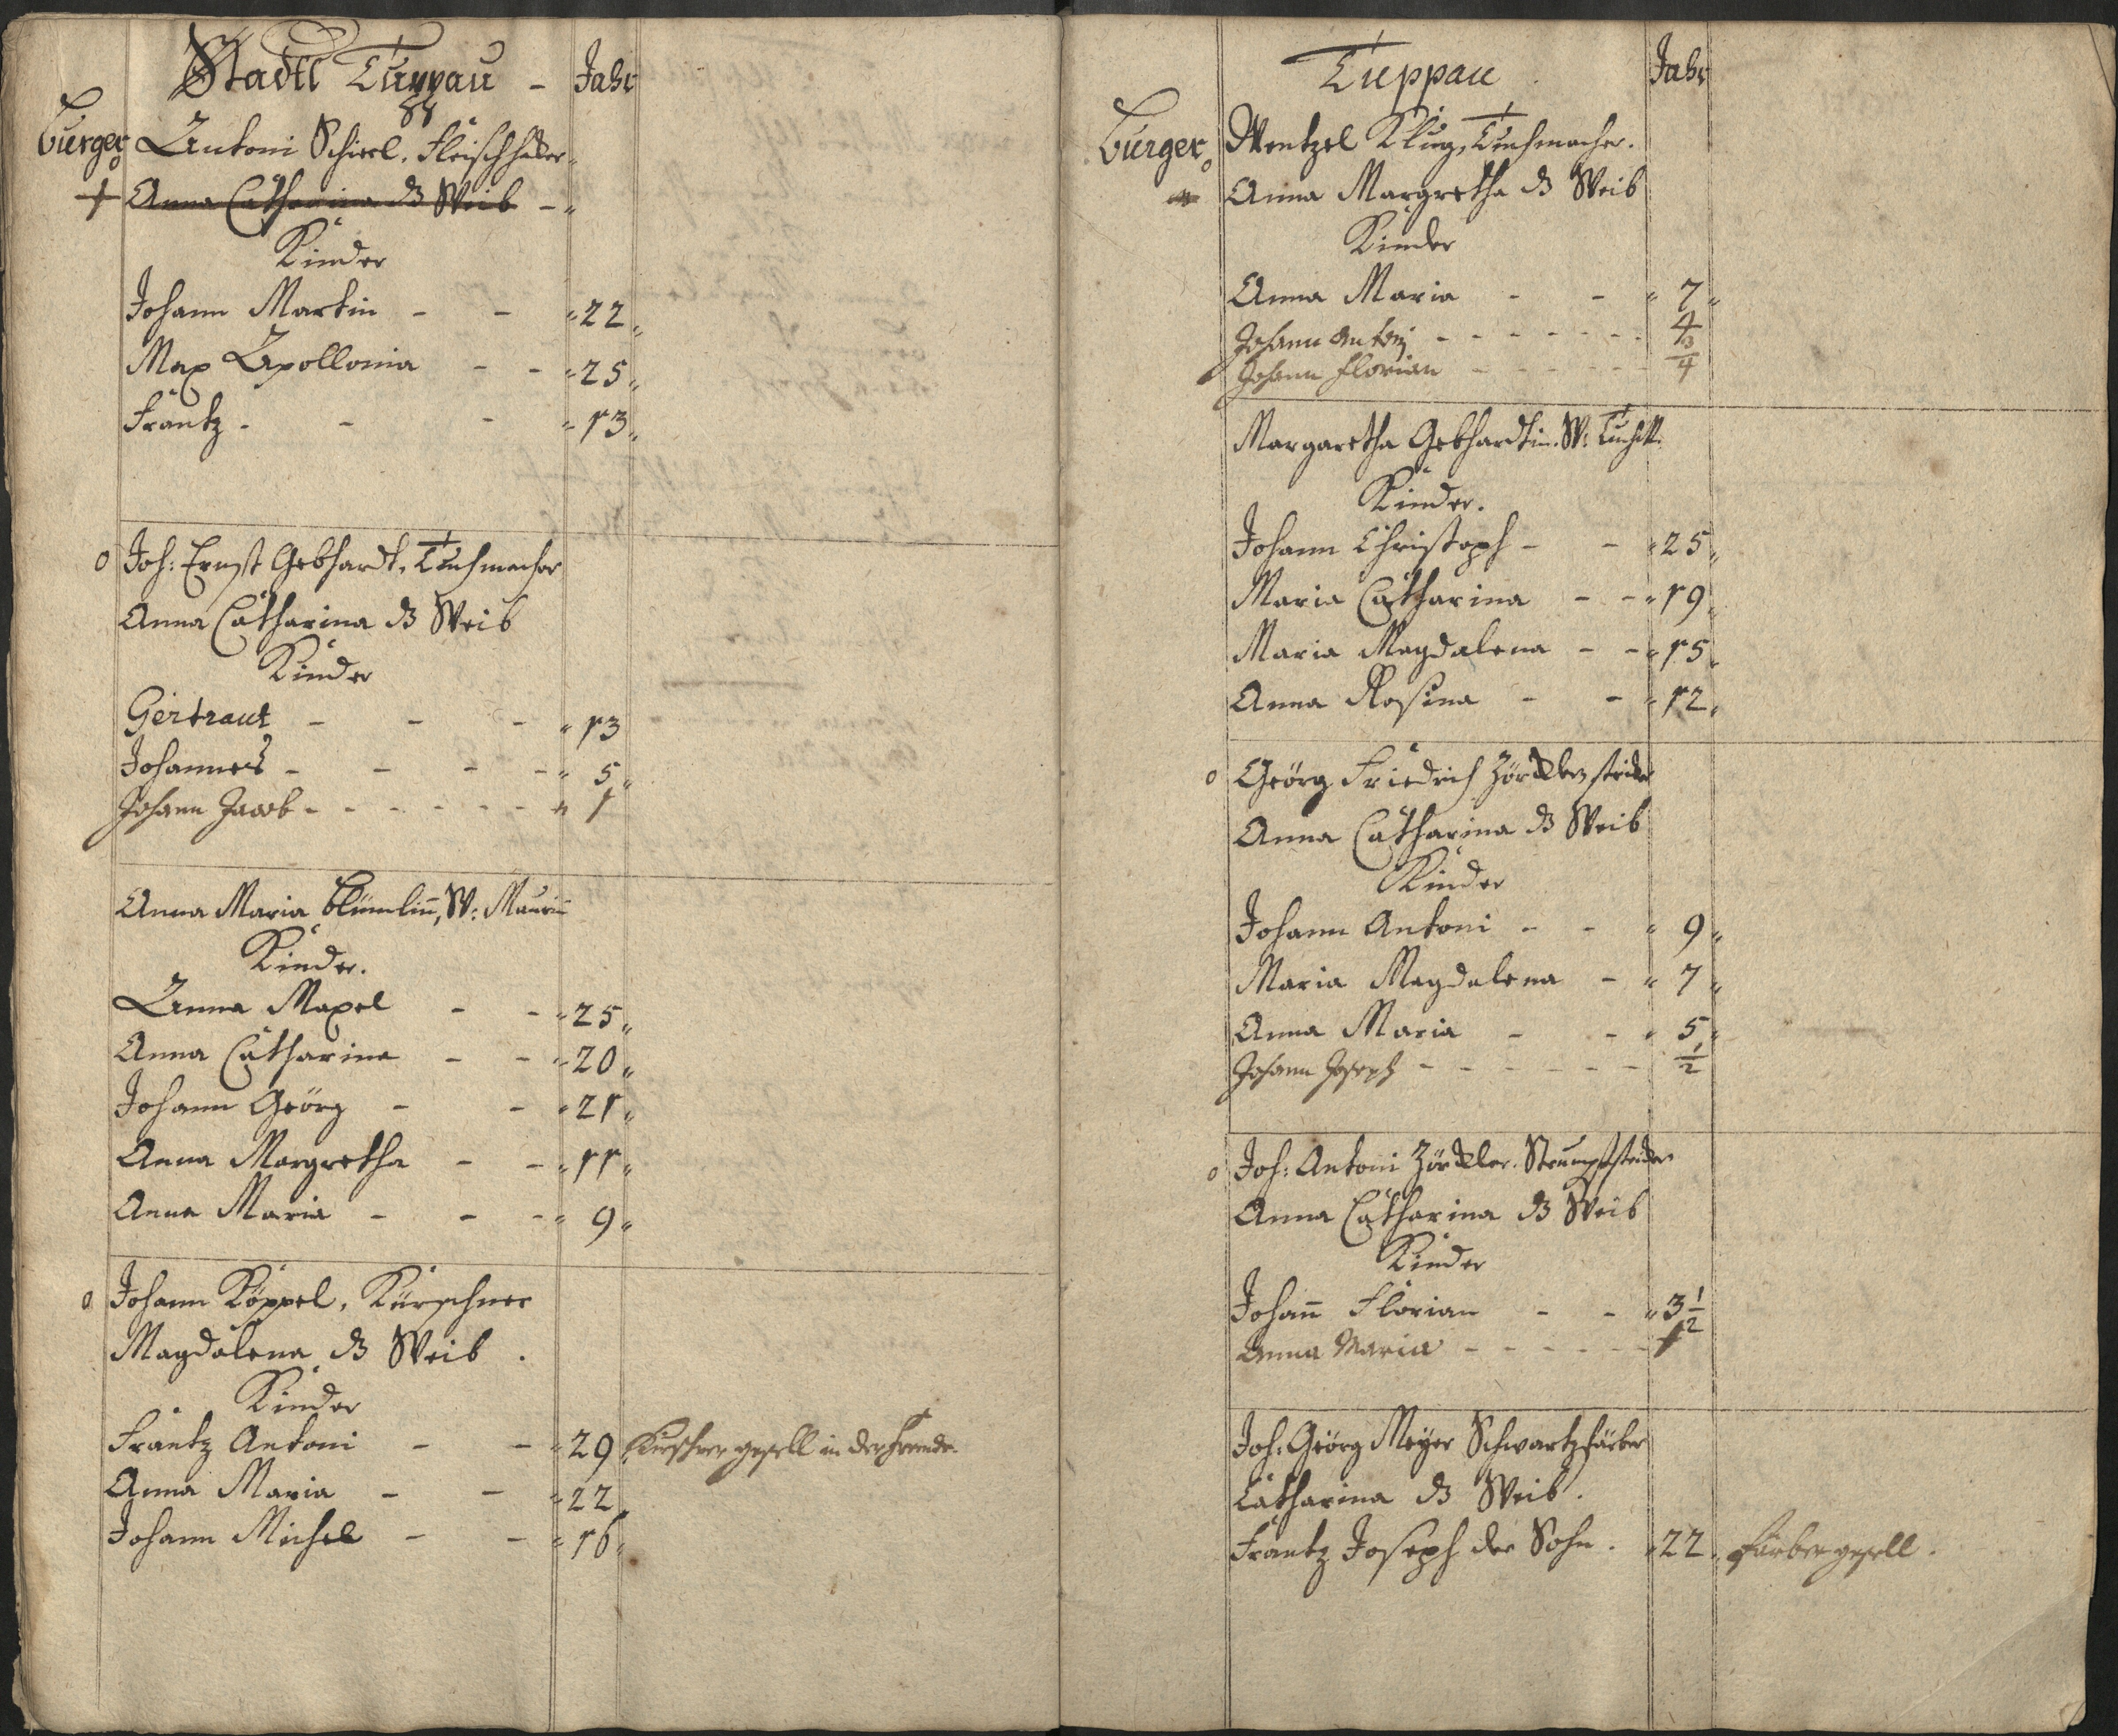 Stadtl Tuppau - Jahr
Burger Antoni Schierl, Fleischhaker
Anna Catharina ds Weib -
Kinder
Johann Martin - - 22
Max Apollonia - - 25
Frantz - - - 13
Joh: Ernst Gebhardt, Tuchmacher
Anna Catharina ds Weib
Kinder
Gertraut - - - 13
Johannes - - - - 5
Johann Jacob - - - - - - 1
Anna Maria Blümlin, W: Maurin
Kinder.
Anna Maxel - - 25
Anna Catharina - - 20
Johann Geörg - - 21
Anna Margretha - - 11
Anna Maria - - - 9
Johann Köppel, Kürschner
Magdalena ds Weib.
Kinder
Frantz Antoni - - 29 Kirschner gesell in der Fremde.
Anna Maria - - 22
Johann Michel - - 16
Tuppau. Jahr
Burger Wentzel Klug, Tuchmacher.
Anna Margretha ds Weib
Kinder
Anna Maria - - 7
Johann Antoni - - - - - - - 4
Johann Florian - - - - - - 3/4
Margaretha Gebhardtin. W: Tuchm.
Kinder.
Johann Christoph - - 25
Maria Catharina - - 19
Maria Magdalena - - 15
Anna Rosina - - 12
Geörg Friedrich Zörkler, striker
Anna Catharina ds Weib
Kinder
Johann Antoni - - 9
Maria Magdalena - 7
Anna Maria - - 5
Johann Joseph - - - - - - 1/2
Joh: Antoni Zörkler. Strumpfstriker
Anna Catharina ds Weib
Kinder
Johan̄ Florian - - 3 1/2
Anna Maria - - - - - 1
Joh: Geörg Meÿer Schwartzfärber
Catharina ds Weib.
Frantz Joseph der Sohn. 22. Färbergesell.